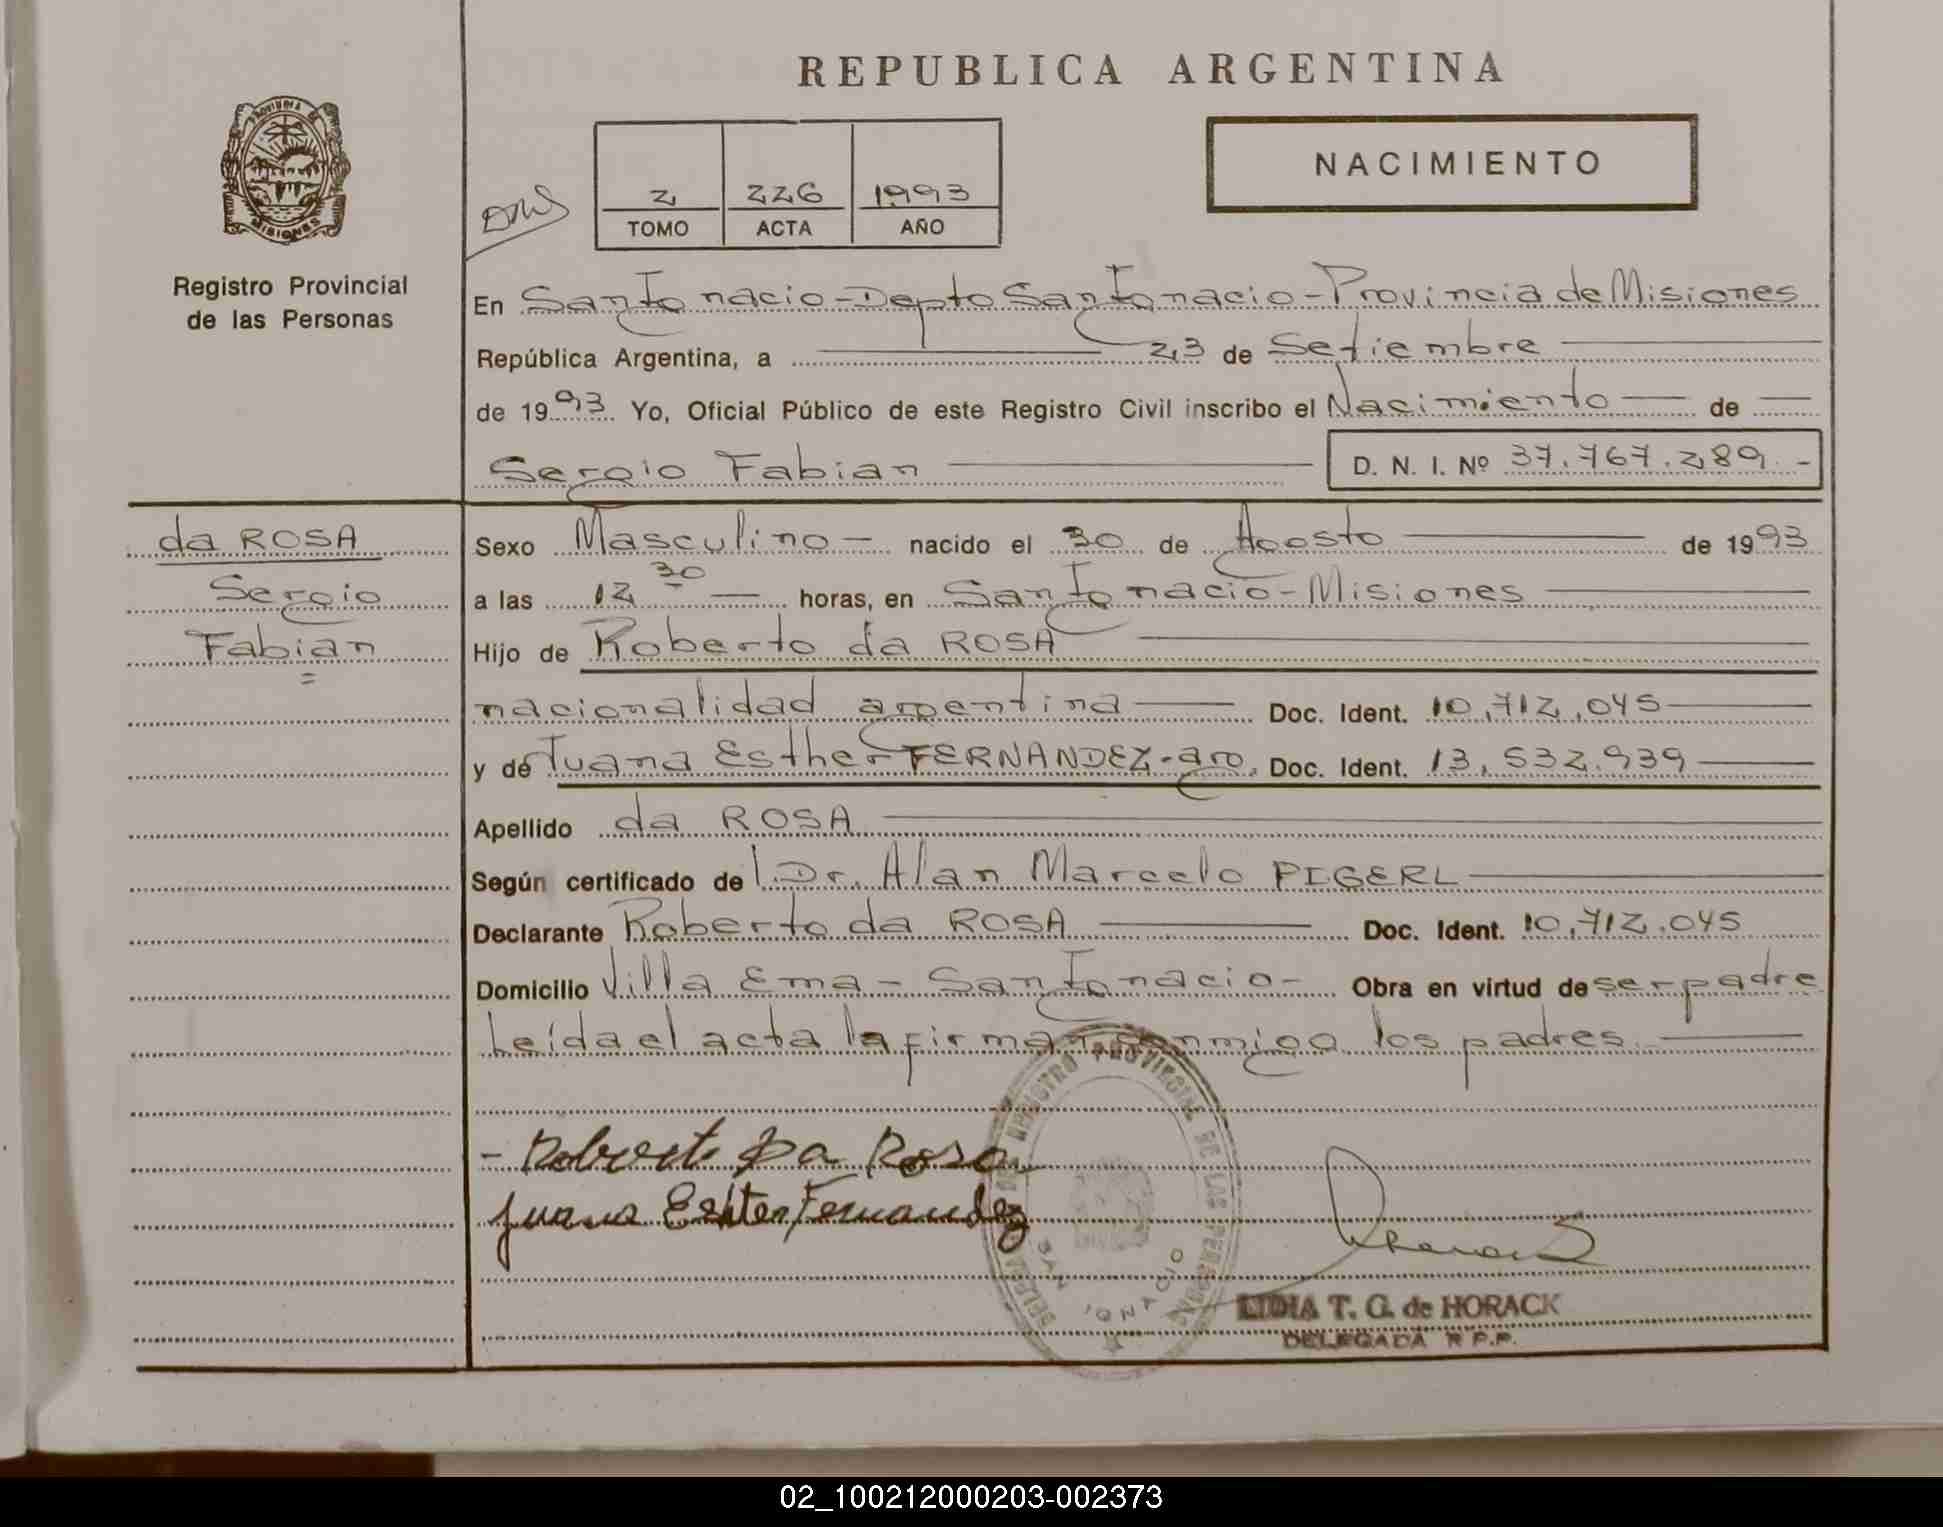 REPUBLICA ARGENTINA
PROVINCIA DE MISIONES
Registro Provincial
de las Personas
2 226 1993
TOMO ACTA AÑO
NACIMIENTO
En San Ignacio - Depto San Ignacio - Provincia de Misiones
República Argentina, a 23 de Setiembre
de 1993 Yo, Oficial Público de este Registro Civil inscribo el Nacimiento de
Sergio Fabian D. N. I. Nº 37.767.289.-
da ROSA
Sergio
Fabian
Sexo Masculino - nacido el 30 de Agosto de 1993
a las 12 30 horas, en San Ignacio - Misiones
Hijo de Roberto da ROSA
nacionalidad argentina Doc. Ident. 10.712.045
y de Juana Esther FERNANDEZ - arg. Doc. Ident. 13.532.939
Apellido da ROSA
Según certificado de l Dr. Alan Marcelo PIGERL
Declarante Roberto da ROSA Doc. Ident. 10.712.045
Domicilio Villa Ema - San Ignacio - Obra en virtud de ser padre
Leída el acta la firman conmigo los padres
- Roberto Da Rosa
Juana Eshter Fernandez
REGISTRO PROVINCIAL DE LAS PERSONAS
SAN IGNACIO
LIDIA T. G. de HORACK
DELEGADA R P.P.
02_100212000203-002373